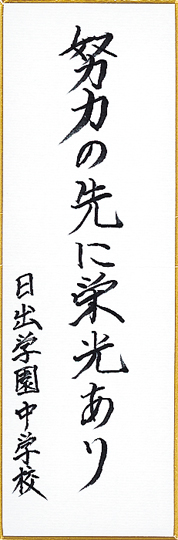 努力の先に栄光あり
日出学園中学校